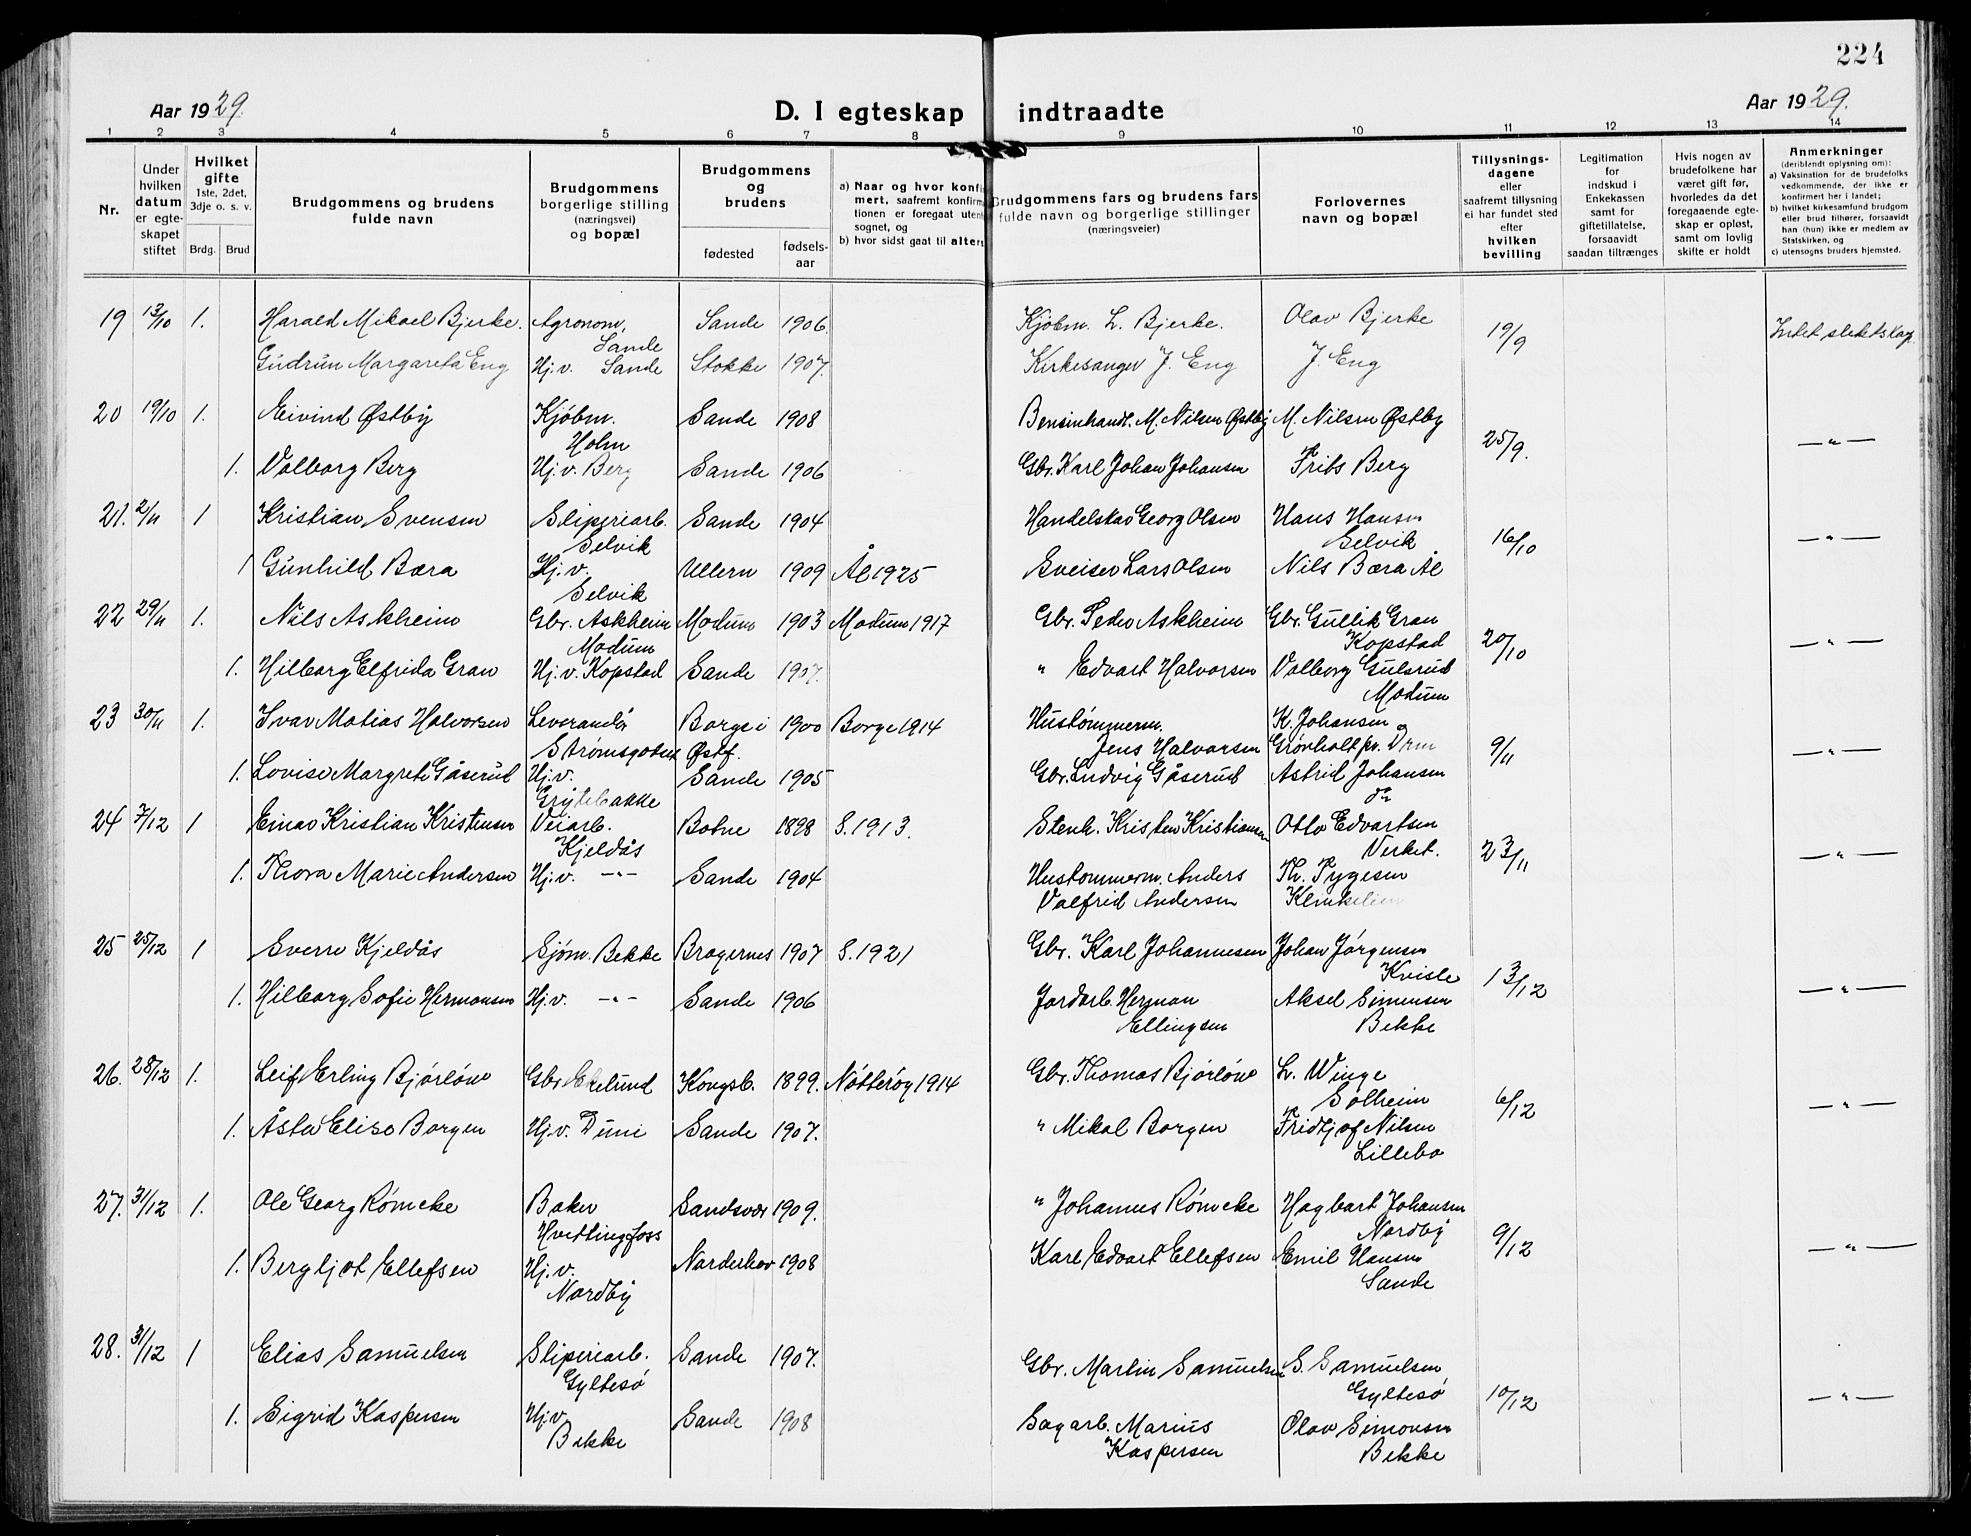 224
Aar 1929.
D. I egteskap indtraadte
Aar 1929.
1 2 3 4 5 6 7 8 9 10 11 12 13 14
Nr.
Under hvilken datum er egte-skapet stiftet
Hvilket gifte 1ste, 2det, 3dje o. s. v.
Brdg. Brud
Brudgommens og brudens fulde navn
Brudgommens borgerlige stilling (næringsvei) og bopæl
Brudgommens og brudens
fødested
fødsels-aar
a) Naar og hvor konfir
mert, saafremt konfirm
tionen er foregaat uten
sognet, og
b) hvor sidst gaat til alters
Brudgommens fars og brudens fars
fulde navn og borgerlige stillinger
(næringsveier)
Forlovernes
navn og bopæl
Tillysnings-
dagene
eller
saafremt tillysning
ei har fundet sted
efter
hvilken
bevilling
Legitimation
for
indskud i
Enkekassen
samt for
giftetillatelse,
forsaavidt
saadan tiltrænges
Hvis nogen av
brudefolkene har
været gift før,
hvorledes da det
foregaaende egte-
skap er opløst,
samt om lovlig
skifte er holdt
Anmerkninger
(deriblandt oplysning om):
a) Vaksination for de brudefolks
vedkommende, der ikke er
konfirmert her i landet;
b) hvilket kirkesamfund brudgom
eller brud tilhører, forsaavidt
han (hun) ikke er medlem av
Statskirken, og
c) utensogns bruders hjemsted.
19 13/10 1. Harald Mikael Bjerke. Agronom, Sande Sande 1906. Kjøbm. L. Bjerke. Olav Bjerke 19/9 Intet slektskap.
Gudrun Margareta Eng Hj.v. Sande Stokke 1907. Kirkesanger J. Eng J. Eng
20 19/10 1. Eivind Østby Kjøbm. Holm Sande 1908 Bensinhandl. M. Nilsen Østby M. Nilsen Østby 25/9. —"—
1. Valborg Berg Hj.v. Berg Sande 1906 Gbr. Karl Johan Johansen Frits Berg
21. 2/11 1 Kristian Svensen Sliperiarb. Selvik Sande 1904 Handelskar Georg Olsen Hans Hansen Selvik 16/10 —"—
1 Gunhild Bæra Hj.v. Selvik Ullern 1909 Ål 1925 Sveiser Lars Olsen Nils Bæra Ål
22 29/11 1. Nils Askheim Gbr. Askheim Modum Modum 1903 Modum 1917 Gbr. Peder Askheim Gbr. Gullik Gran Kopstad 20/10 —"—
1. Hilborg Elfrida Gran Hj.v. Kopstad Sande 1907. " Edvart Halvorsen Valborg Gulsrud Modum
23 30/11 1. Ivar Matias Halvorsen Leverandør Strømsgoten Borge i Østf. 1900 Borge 1914 Hustømmerm. Jens Halvorsen K. Johansen Grønholt pr. Drm 9/11 —"—
1. Lovise Margrete Gåserud Hj.v. Grytebakke Sande 1905 Gbr. Ludvig Gåserud Astrid Johansen do
24 7/12 1 Einar Kristian Kristensen Veiarb. Kjeldås Botne 1898 S. 1913. Stenh. Kristen Kristiansen Otto Edvartsen Verket. 23/11 —"—
1. Thora Marie Andersen Hj.v. —"— Sande 1904 Hustømmerm. Anders Valfrid Andersen Th. Tygesen
25 25/12 1 Sverre Kjeldås Sjøm. Bekke Bragernes 1907 S. 1921 Gbr. Karl Johannesen Johan Jørgensen Kvisle 13/12 —"—
1. Hilborg Sofie Hermansen Hj.v. —"— Sande 1906 Jordarb. Herman Ellingsen Aksel Simensen Bekke
26. 28/12 1. Leif Erling Bjørløw Gbr. Ekelund Kongsb. 1899. Nøtterøy 1914 Gbr. Thomas Bjørløw L. Winge Solheim 6/12 —"—
1. Åsta Elise Borgen Hj.v. Duni Sande 1907. " Mikal Borgen Fridtjof Nilsen Lillebo
27. 31/12 1. Ole Georg Rømcke Baker Hvittingfoss Sandsvær 1909. " Johannes Rømcke Hagbart Johansen Nordby 9/12 —"—
1. Bergljot Ellefsen Hj.v. Nordby Norderhov 1908 Karl Edvart Ellefsen Emil Hansen Sande
28. 31/12 1 Elias Samuelsen Sliperiarb. Gyltesø Sande 1907. Gbr. Martin Samuelsen S. Samuelsen Gyltesø 10/12 —"—
1. Sigrid Kaspersen Hj.v. Bekke Sande 1908 Sagarb. Marius Kaspersen Olav Simonsen Bekke